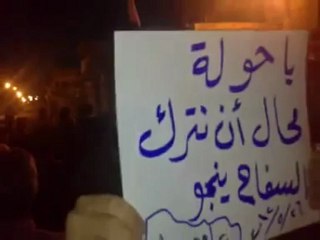 يا حولة
محال أن نترك
السفاح ينجو